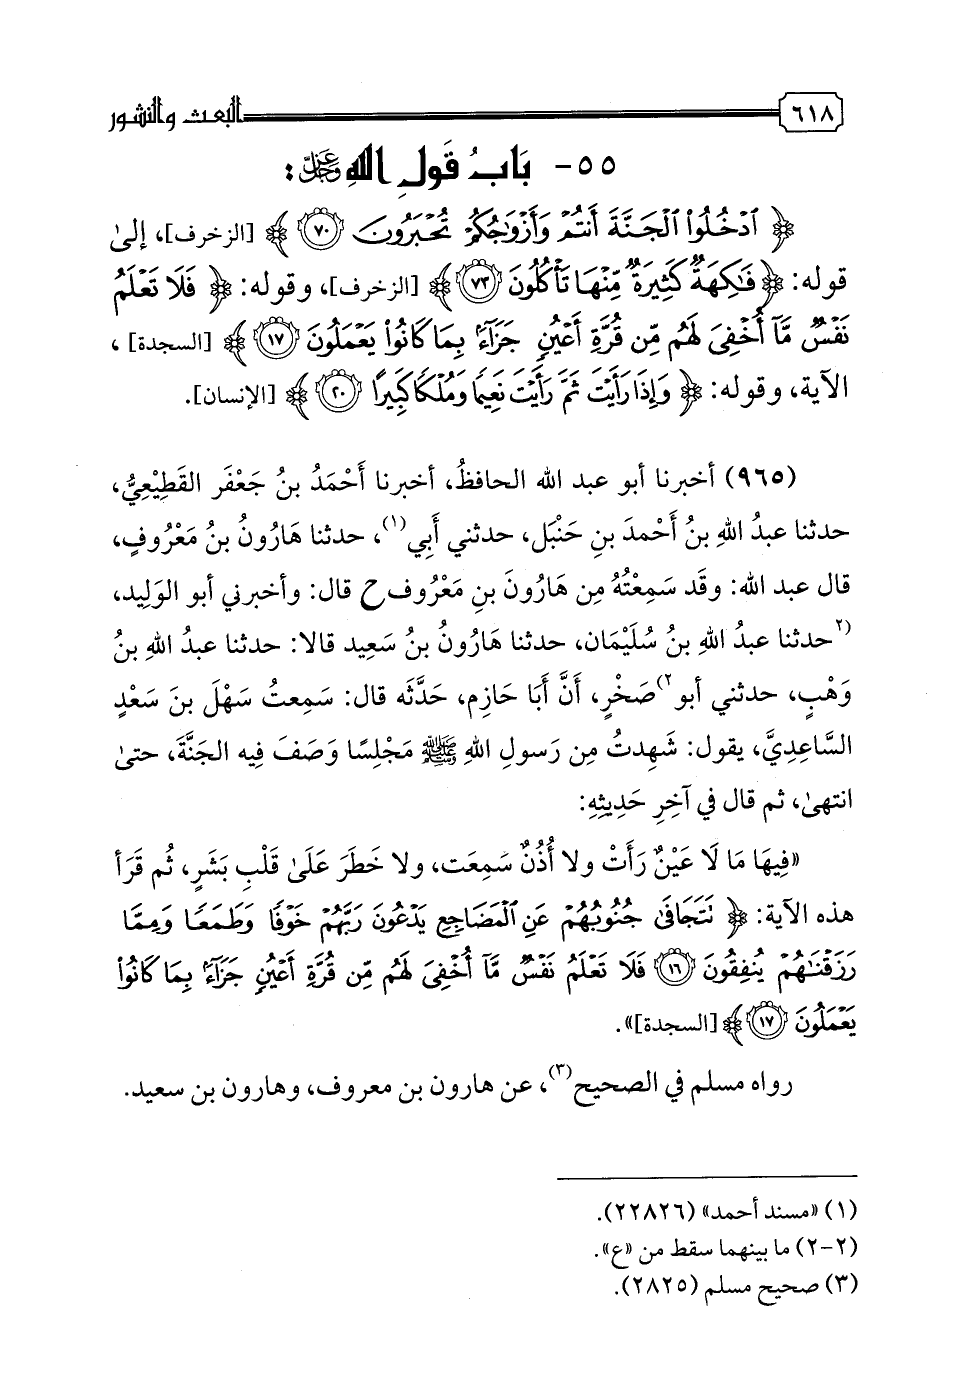 ٦١٨ البعث والنشور
٥٥- بَابُ قَولِ اللهِ عَزَّ وَجَلَّ:
﴿ ٱدْخُلُوا۟ ٱلْجَنَّةَ أَنتُمْ وَأَزْوَٰجُكُمْ تُحْبَرُونَ ٧٠ ﴾ [الزخرف]، إلىٰ
قوله: ﴿ فَٰكِهَةٌ كَثِيرَةٌ مِّنْهَا تَأْكُلُونَ ٧٣ ﴾ [الزخرف]، وقوله: ﴿ فَلَا تَعْلَمُ
نَفْسٌ مَّآ أُخْفِىَ لَهُم مِّن قُرَّةِ أَعْيُنٍ جَزَآءًۢ بِمَا كَانُوا۟ يَعْمَلُونَ ١٧ ﴾ [السجدة] ،
الآية، وقوله: ﴿ وَإِذَا رَأَيْتَ ثَمَّ رَأَيْتَ نَعِيمًا وَمُلْكًا كَبِيرًا ٢٠ ﴾ [الإنسان].
(٩٦٥) أخبرنا أبو عبد الله الحافظُ، أخبرنا أَحْمَدُ بنُ جَعْفَر القَطِيْعِيُّ،
حدثنا عبدُ اللهِ بنُ أَحْمدَ بنِ حَنْبَل، حدثني أَبِي(١)، حدثنا هَارُونُ بنُ مَعْرُوفٍ،
قال عبد الله: وقَد سَمِعْتُهُ مِن هَارُونَ بنِ مَعْرُوف ح قال: وأخبرني أبو الوَلِيد،
٢)حدثنا عبدُ اللهِ بنُ سُلَيْمَان، حدثنا هَارُونُ بنُ سَعِيد قالا: حدثنا عبدُ اللهِ بنُ
وَهْبٍ، حدثني أبو٢)صَخْرٍ، أَنَّ أبَا حَازِم، حَدَّثَه قال: سَمِعتُ سَهْلَ بنَ سَعْدٍ
السَّاعِدِيَّ، يقول: شَهِدتُ مِن رَسولِ اللهِ ﷺ مَجْلِسًا وَصَفَ فِيه الجَنَّةَ، حتىٰ
انتهىٰ، ثم قال في آخِرِ حَدِيثِهِ:
«فِيهَا مَا لَا عَيْنٌ رَأَتْ ولا أُذُنٌ سَمِعَت، ولا خَطَرَ عَلَىٰ قَلْبِ بَشَرٍ، ثُم قَرَأ
هذه الآية: ﴿ تَتَجَافَىٰ جُنُوبُهُمْ عَنِ ٱلْمَضَاجِعِ يَدْعُونَ رَبَّهُمْ خَوْفًا وَطَمَعًا وَمِمَّا
رَزَقْنَٰهُمْ يُنفِقُونَ ١٦ فَلَا تَعْلَمُ نَفْسٌ مَّآ أُخْفِىَ لَهُم مِّن قُرَّةِ أَعْيُنٍ جَزَآءًۢ بِمَا كَانُوا۟
يَعْمَلُونَ ١٧ ﴾ [السجدة]».
رواه مسلم في الصحيح(٣)، عن هارون بن معروف، وهارون بن سعيد.
(١) «مسند أحمد» (٢٢٨٢٦).
(٢-٢) ما بينهما سقط من «ع».
(٣) صحيح مسلم (٢٨٢٥).